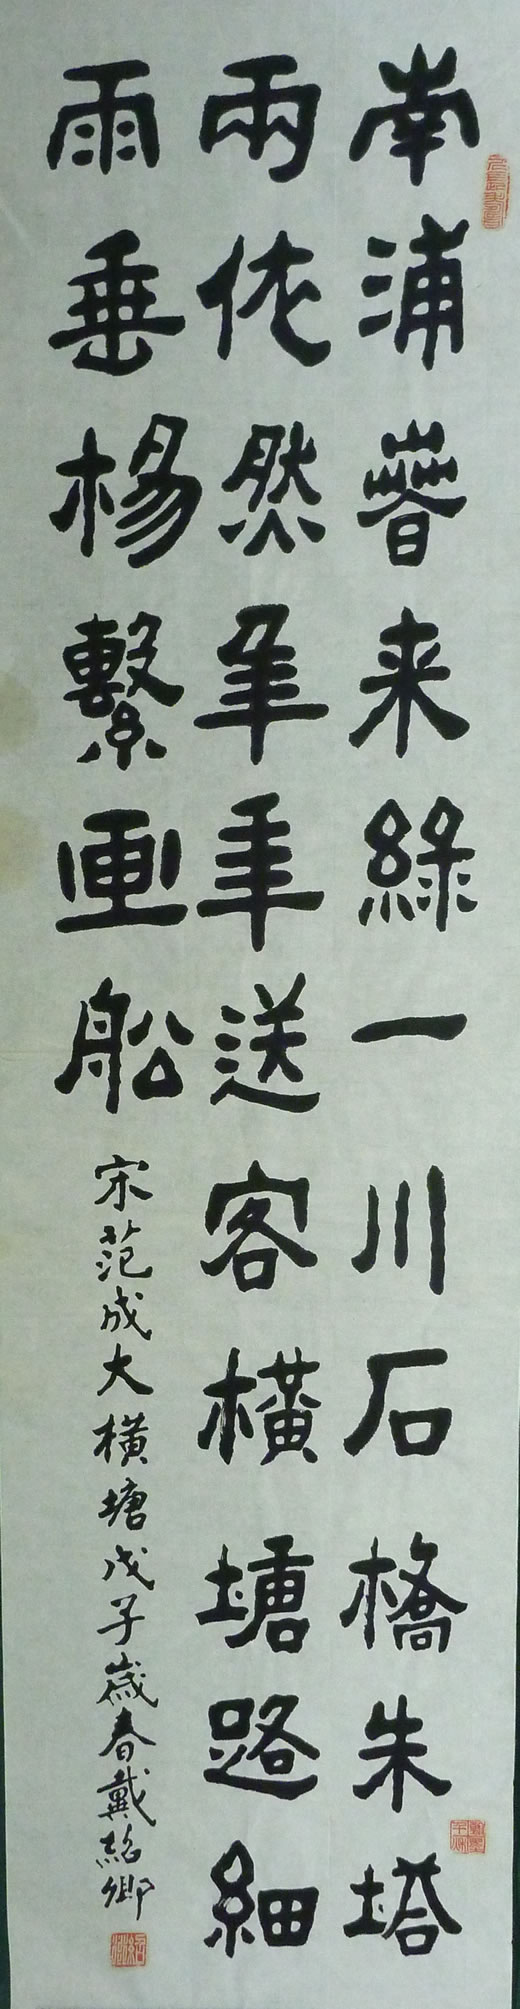 南浦萅来綠一川石橋朱塔
兩依然年年送客橫塘路細
雨垂楊繫画船
宋范成大橫塘戊子歲春戴紹